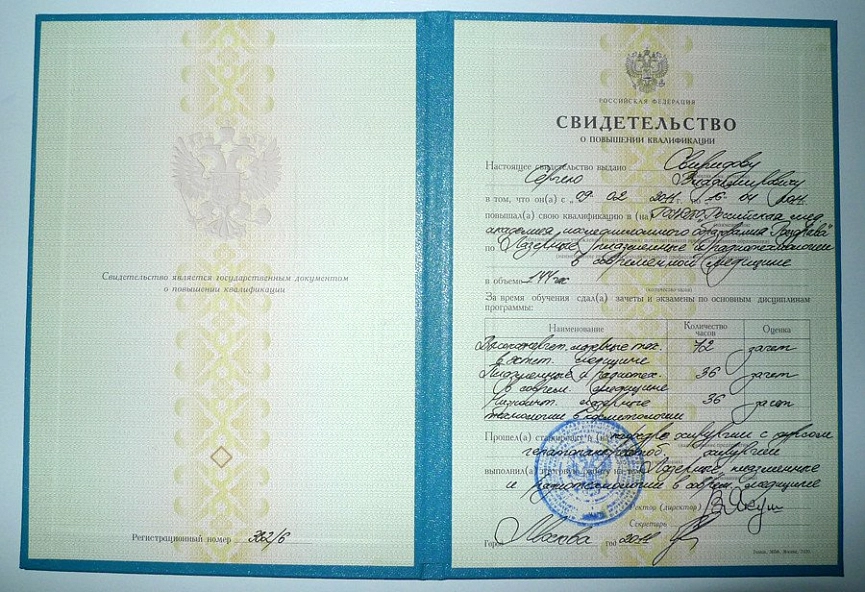 Свидетельство является государственным документом
о повышении квалификации
Регистрационный номер
РОССИЙСКАЯ ФЕДЕРАЦИЯ
СВИДЕТЕЛЬСТВО
О ПОВЫШЕНИИ КВАЛИФИКАЦИИ
Настоящее свидетельство выдано Свиридову
Сергею Владимировичу
в том, что он(а) с „09 02 2011 по 16 04 2011
повышал(а) свою квалификацию в (на) Российская мед.
академия последипломного образования Росздрава"
по Лазерные, плазменные и радиотехнологии
в современной медицине
в объеме 144 час
За время обучения сдал(а) зачеты и экзамены по основным дисциплинам
программы:
Наименование Количество часов Оценка
лазерные тех. 72 зачет
в эстет. медицине
Плазменные и радиотех. 36 зачет
в соврем. медицине
лазерные 36 зачет
технологии в косметологии
Прошел(а) стажировку в (на) кафедре хирургии с курсом
хирургии
выполнил(а) итоговую работу на тему Лазерные, плазменные
и радиотехнологии в соврем. медицине
Ректор (директор)
Секретарь
Город Москва год 2011